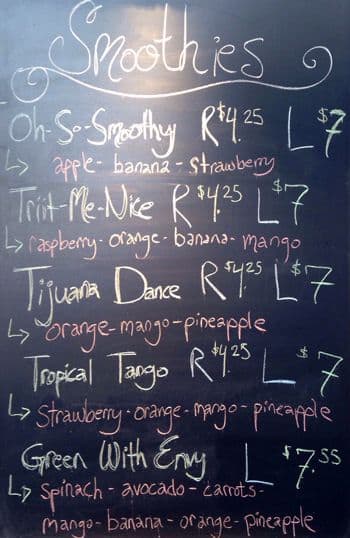 Smoothies
Oh-So-Smoothy R $4.25 L $7
apple - banana - strawberry
Triit-Me-Nice R $4.25 L $7
raspberry - orange - banana - mango
Tijuana Dance R $4.25 L $7
orange - mango - pineapple
Tropical Tango R $4.25 L $7
Strawberry - orange - mango - pineapple
Green With Envy L $7.55
Spinach - avocado - carrots -
mango - banana - orange - pineapple